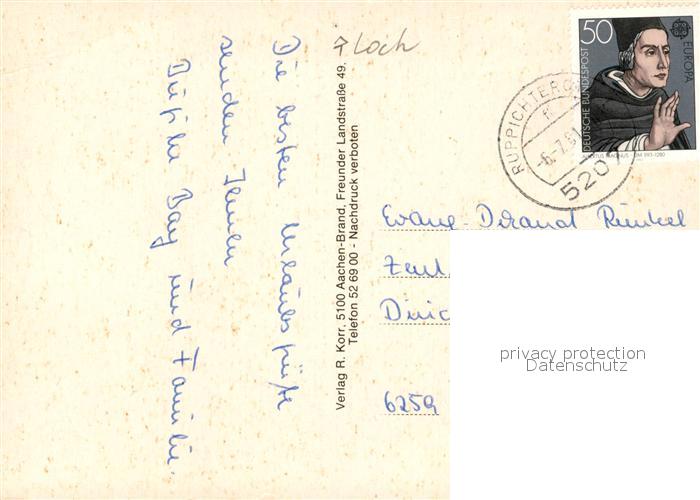 Die besten Urlaubsgrüße
senden Ihnen
Bay und Familie.
Loch
Verlag R. Korr, 5100 Aachen-Brand, Freunder Landstraße 49,
Telefon 52 69 00 - Nachdruck verboten
50
EUROPA
DEUTSCHE BUNDESPOST
ALBERTUS MAGNUS · 1193-1280
RUPPICHTERO
-6.-7.81
520
Evang. Dekanat Runkel
6259
privacy protection
Datenschutz